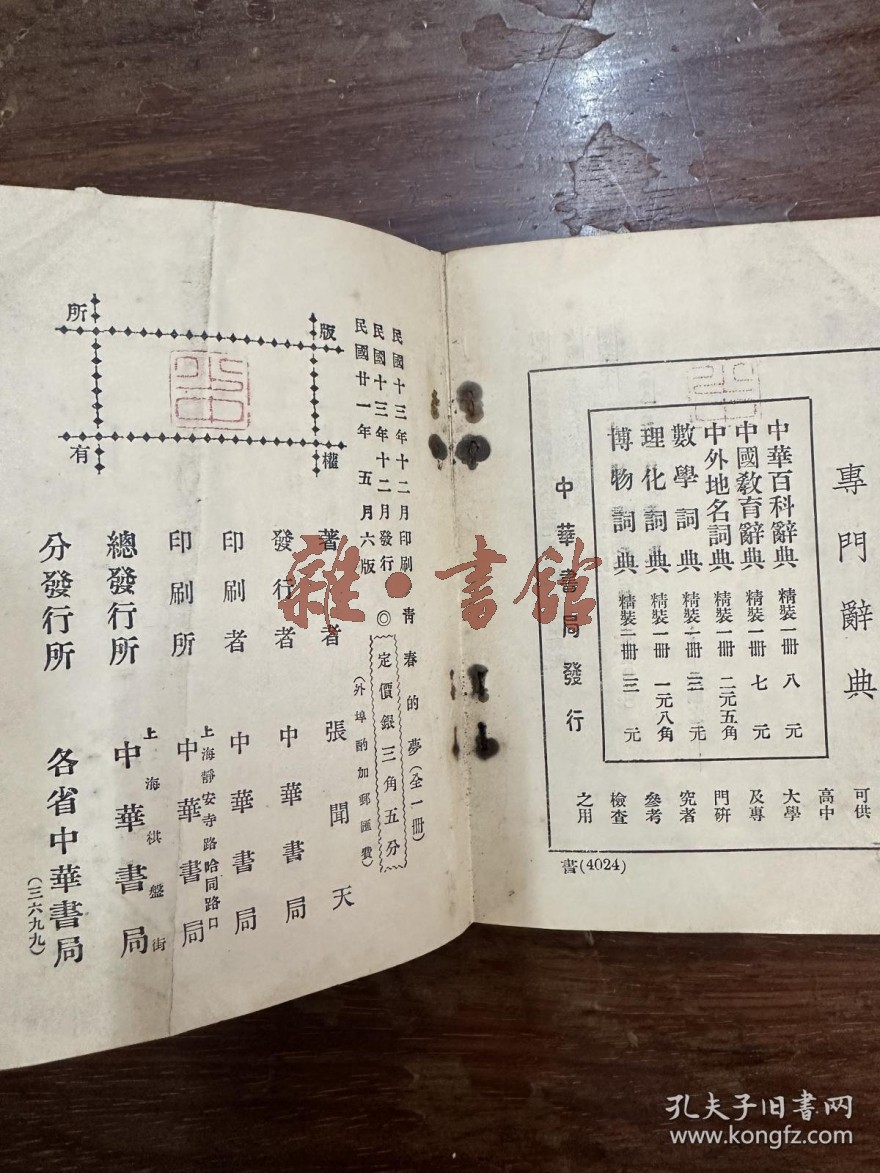 專門辭典
中華百科辭典 精裝一冊 八元
中國教育辭典 精裝一冊 七元
中外地名詞典 精裝一冊 二元五角
數學詞典 精裝一冊 三元
理化詞典 精裝一冊 一元八角
博物詞典 精裝一冊 三元
中華書局發行
可供
高中
大學
及專
門研
究者
參考
檢查
之用
書(4024)
民國十三年十二月印刷
民國十三年十二月發行
民國廿一年五月六版
青春的夢(全一冊)
◎
定價銀三角五分
(外埠酌加郵匯費)
版權所有
著者 張聞天
發行者 中華書局
印刷者 中華書局
印刷所 上海靜安寺路哈同路口 中華書局
總發行所 上海棋盤街 中華書局
分發行所 各省中華書局
(三六九九)
雜·書館
孔夫子旧书网
www.kongfz.com